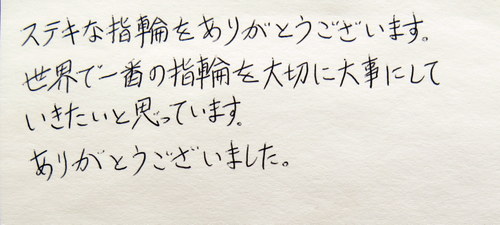 ステキな指輪をありがとうございます。
世界で一番の指輪を大切に大事にして
いきたいと思っています。
ありがとうございました。